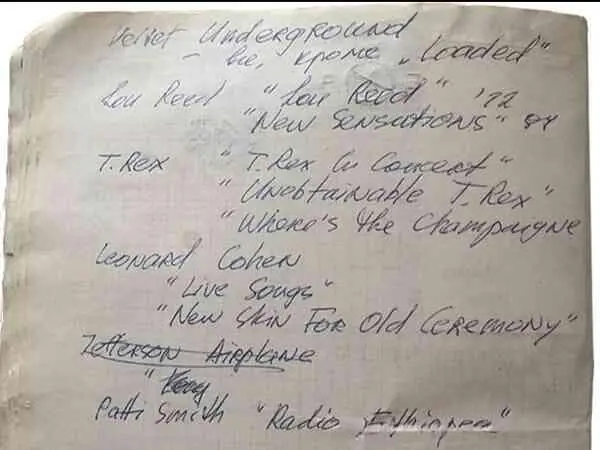 Velvet Underground
– все, кроме "Loaded"
Lou Reed "Lou Reed" '72
"New Sensations" 84
T.Rex "T.Rex In Concert"
"Unobtainable T.Rex"
"Where's the Champaigne
Leonard Cohen
"Live Songs"
"New Skin For Old Ceremony"
Jefferson Airplane
Patti Smith "Radio Ethiopea"